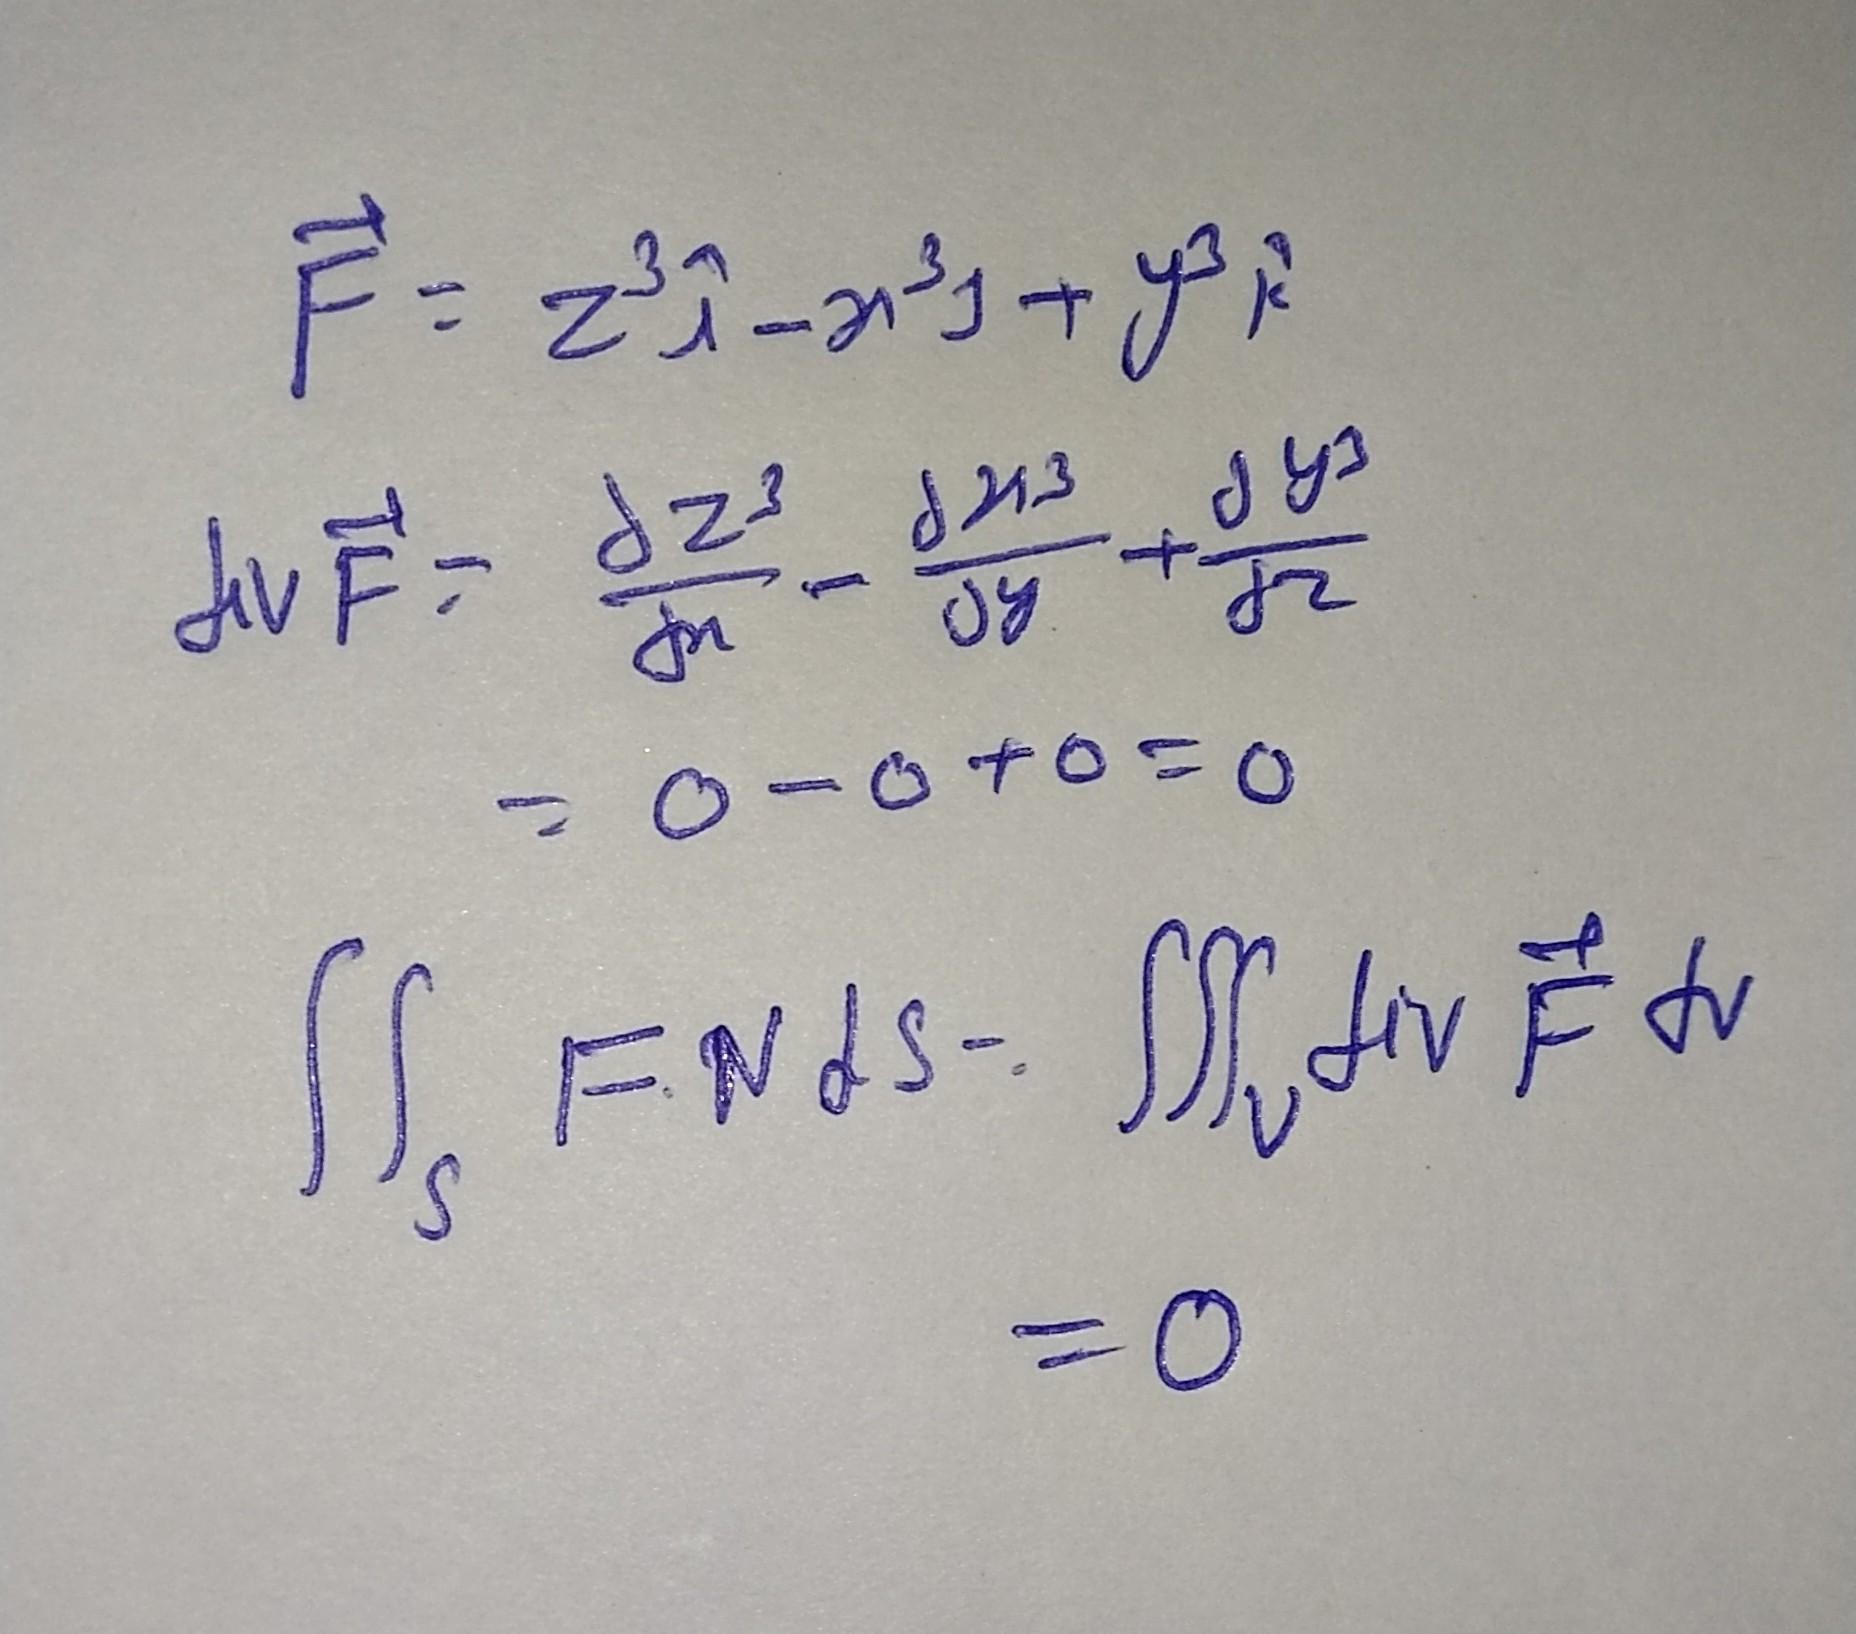 F⃗ = z³î - x³j + y³k̂
div F⃗ = ∂z³/∂x - ∂x³/∂y + ∂y³/∂z
= 0 - 0 + 0 = 0
∬_S F.N ds = ∭_V div F⃗ dv
= 0